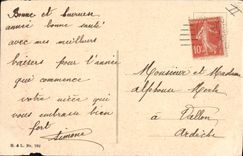 Bonne et heureuse
année bonne santé
avec mes meilleurs
baisers pour l'année
qui commence
votre nièce qui
vous embrasse bien
fort
Simone
Monsieur et Madame
Alphonse
à Vallon
Ardèche
10